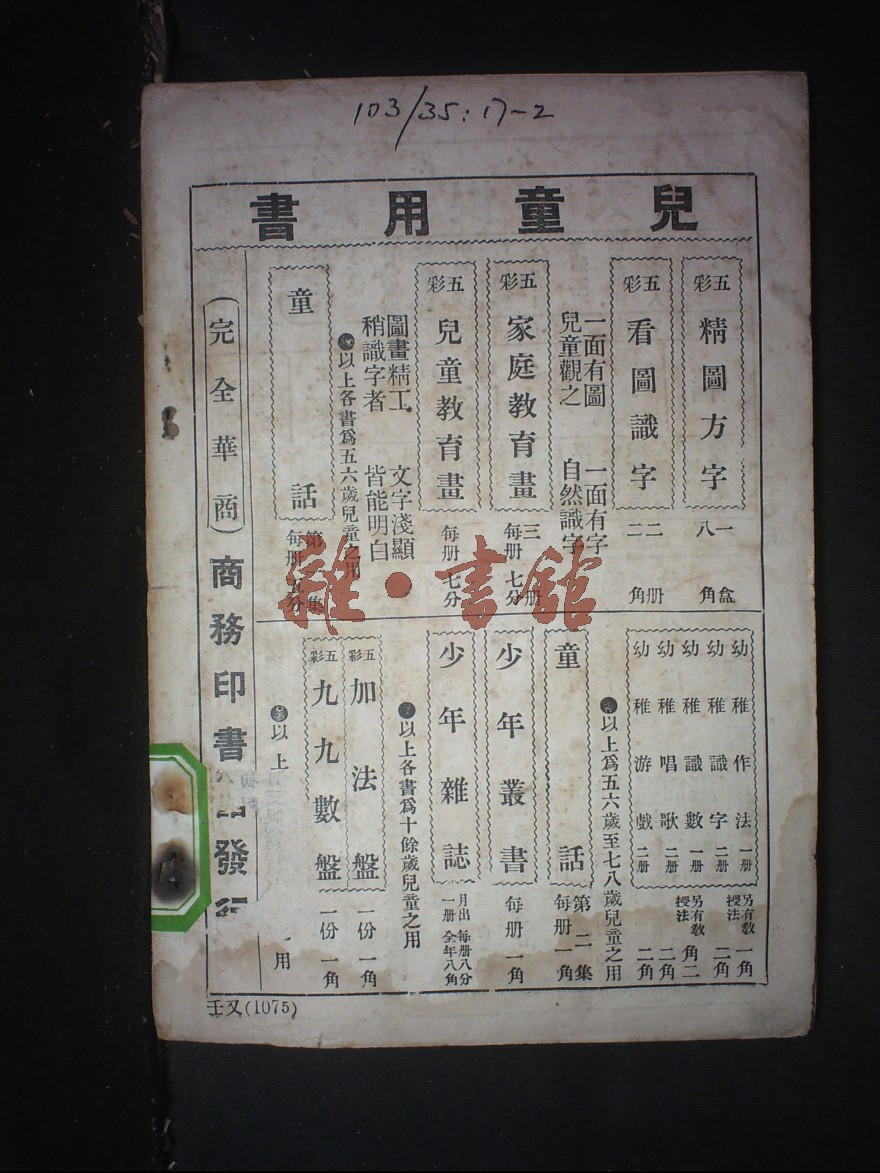 103/35:17-2
兒童用書
五彩 精圖方字 一盒 八角
五彩 看圖識字 二册 二角
一面有圖 一面有字
兒童觀之 自然識字
五彩 家庭教育畫 三册 每册七分
五彩 兒童教育畫 每册七分
圖畫精工 文字淺顯
稍識字者 皆能明白
以上各書爲五六歲兒童之用
童話 第一集 每册五分
幼稚作法 一册 另有教授法 一角
幼稚識字 二册 二角
幼稚識數 一册 另有教授法 二角
幼稚唱歌 二册 二角
幼稚游戲 二册 二角
以上爲五六歲至七八歲兒童之用
童話 第二集 每册一角
少年叢書 每册一角
少年雜誌 月出一册 每册八分 全年八角
以上各書爲十餘歲兒童之用
五彩 加法盤 一份一角
五彩 九九數盤 一份一角
以上 用
(完全華商) 商務印書 發行
壬又(1075)
雜·書館